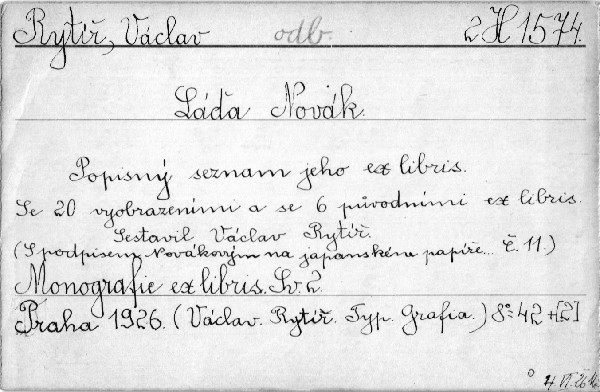 Rytíř, Václav odb. 2 H 1574.
Láďa Novák.
Popisný seznam jeho ex libris.
Se 20 vyobrazeními a se 6 původními ex libris.
Sestavil Václav Rytíř.
(S podpisem Novákovým na japanském papíře... č. 11.)
Monografie ex libris. Sv. 2.
Praha 1926. (Václav. Rytíř. Typ. Grafia.) 8° 42 + [2]